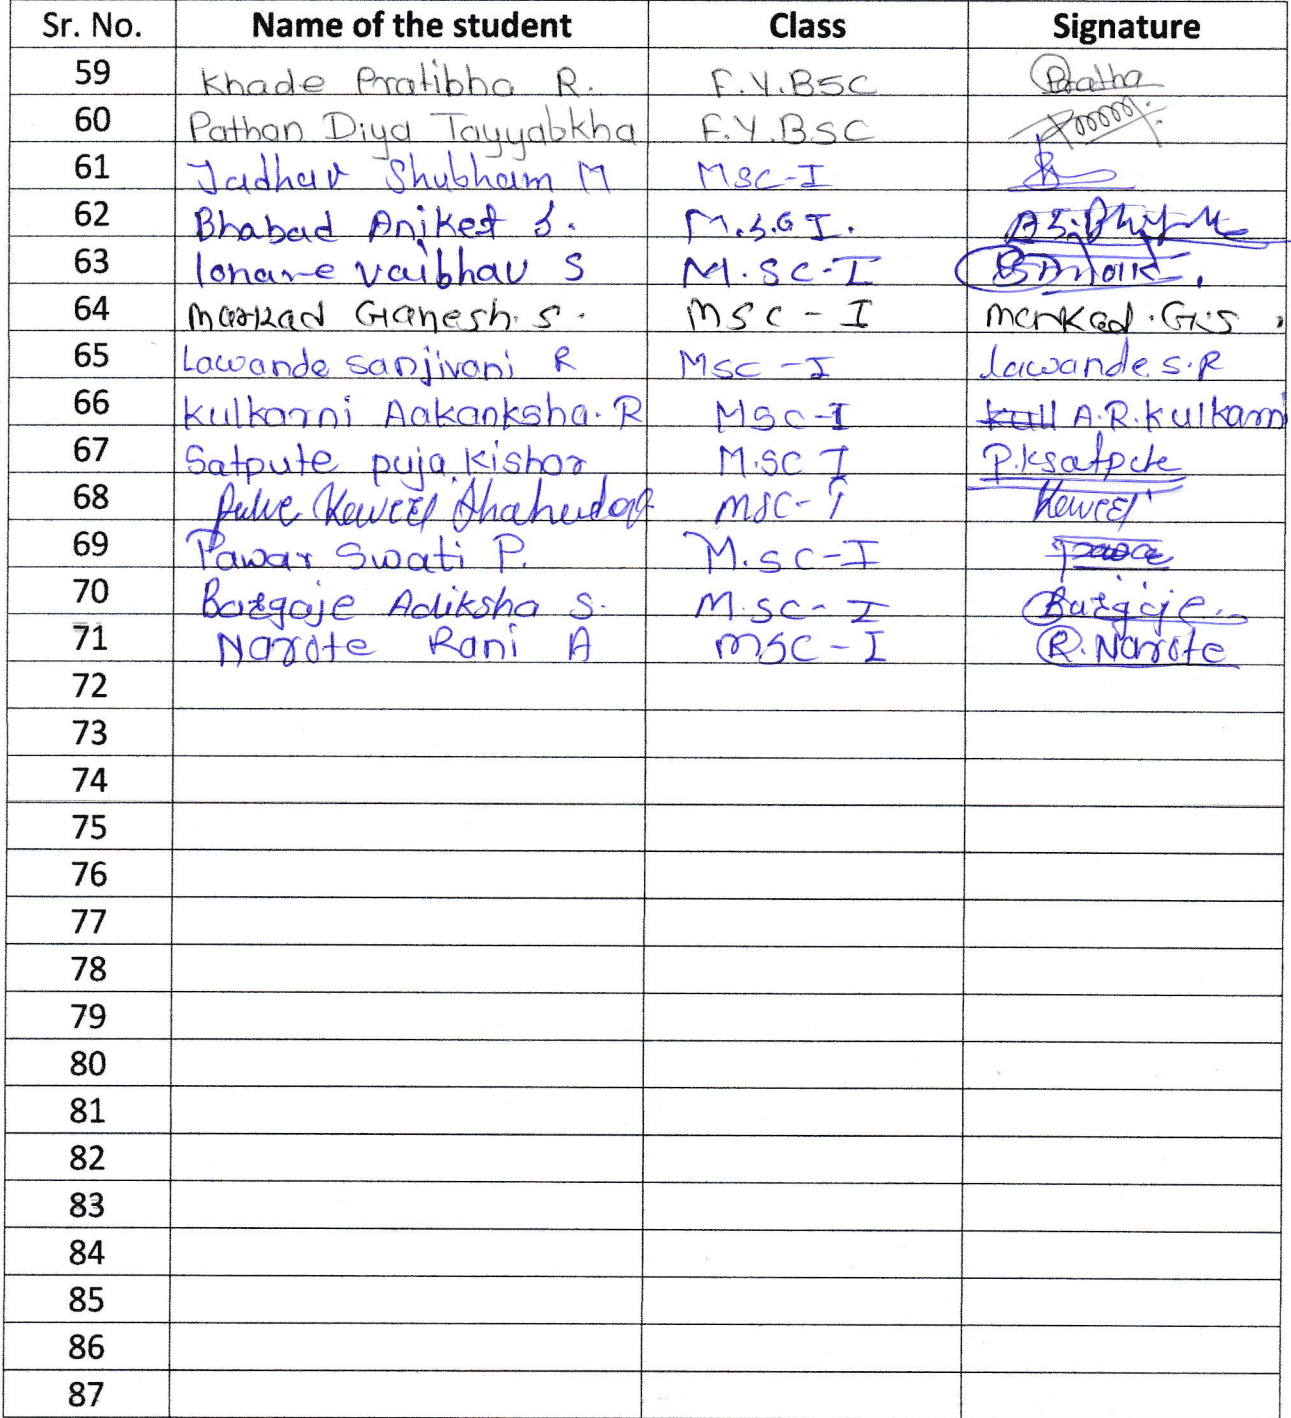 Sr. No. Name of the student Class Signature
59 Khade Pratibha R. F.Y.BSC Pratha
60 Pathan Diya Tayyabkha F.Y.BSC
61 Jadhav Shubham M MSC-I
62 Bhabad Aniket S. M.S.C I.
63 lonare vaibhav S M.SC-I
64 Markad Ganesh. S. MSC - I Markad.G.S
65 Lawande sanjivani R MSC -I Lawande S.R
66 Kulkarni Aakanksha.R MSC-I A.R.Kulkarni
67 Satpute puja kishor M.SC I P.Ksatpute
68 MSC-I
69 Pawar Swati P. M.SC-I
70 Bargaje Adiksha S. M.SC- I Bargaje
71 Narote Rani A MSC-I R.Narote
72
73
74
75
76
77
78
79
80
81
82
83
84
85
86
87